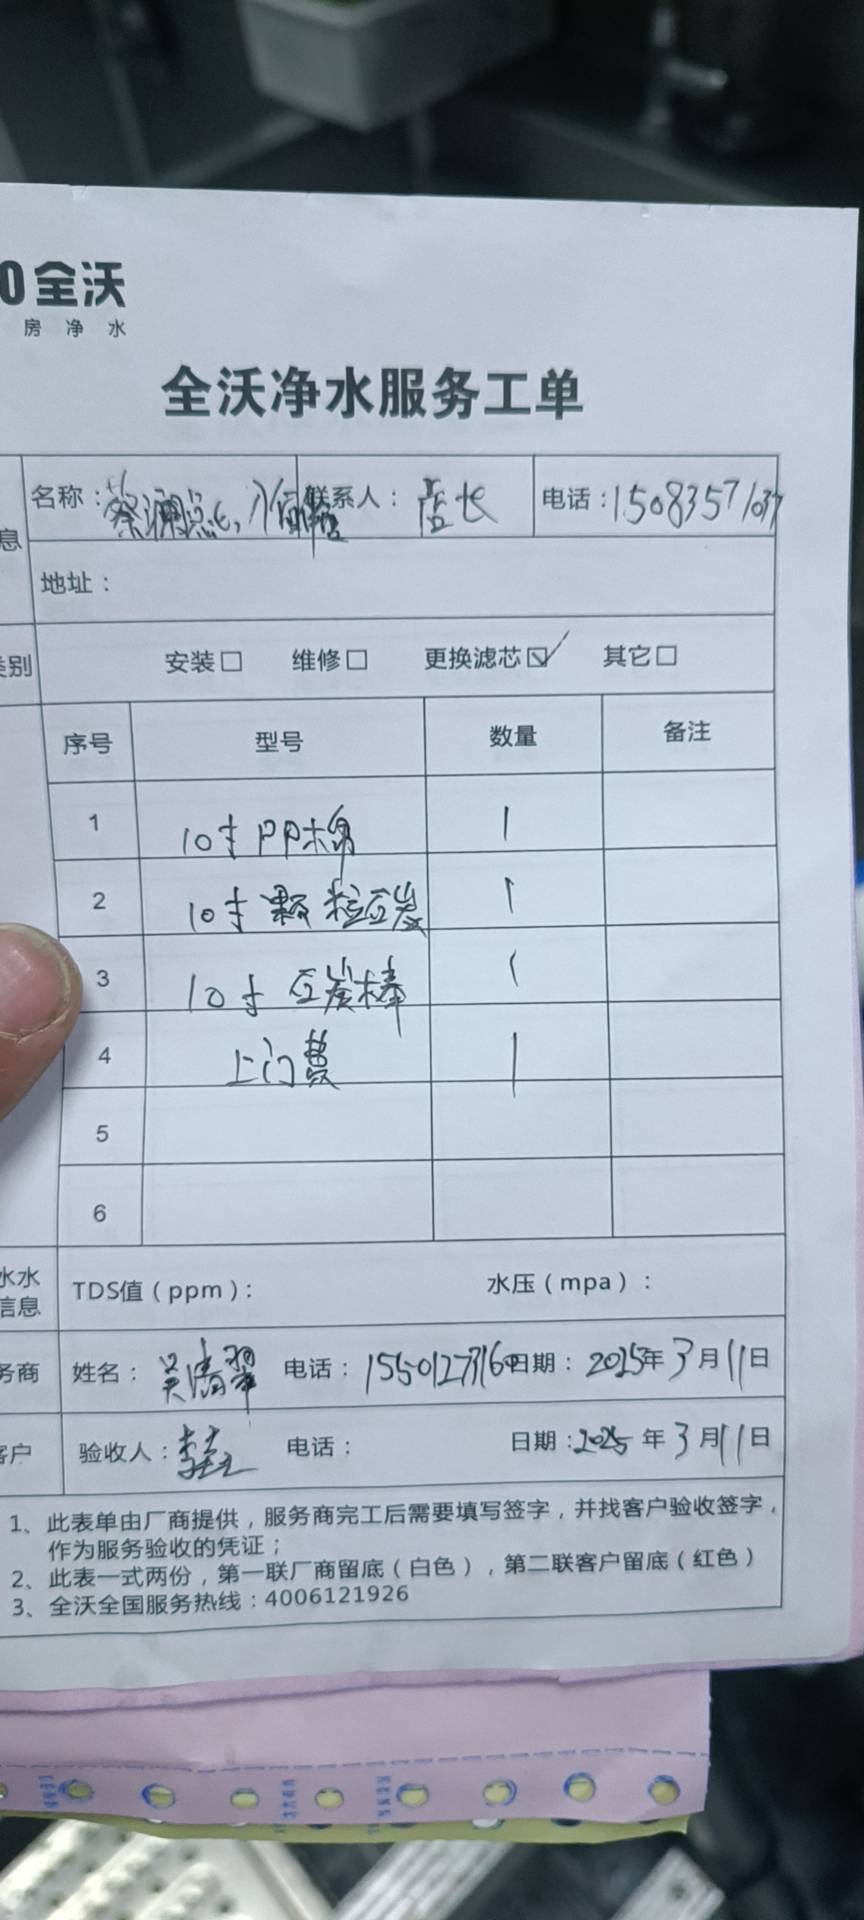 0 全沃
房 净 水
全沃净水服务工单
息 名称：蔡澜点心 联系人：店长 电话：15083571037
地址：
类别 安装□ 维修□ 更换滤芯☑ 其它□
序号 型号 数量 备注
1 10寸PP棉 1
2 10寸颗粒石炭 1
3 10寸石炭棒 1
4 上门费 1
5
6
水水 TDS值（ppm）： 水压（mpa）：
信息
务商 姓名：吴清翠 电话： 日期：2025年3月11日
客户 验收人： 电话： 日期：2025年3月11日
1、此表单由厂商提供，服务商完工后需要填写签字，并找客户验收签字，
作为服务验收的凭证；
2、此表一式两份，第一联厂商留底（白色），第二联客户留底（红色）
3、全沃全国服务热线：4006121926